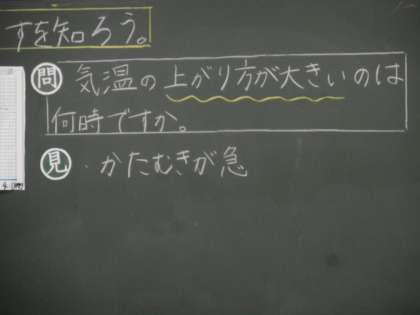 すを知ろう。
問 気温の上がり方が大きいのは
何時ですか。
見 ・かたむきが急